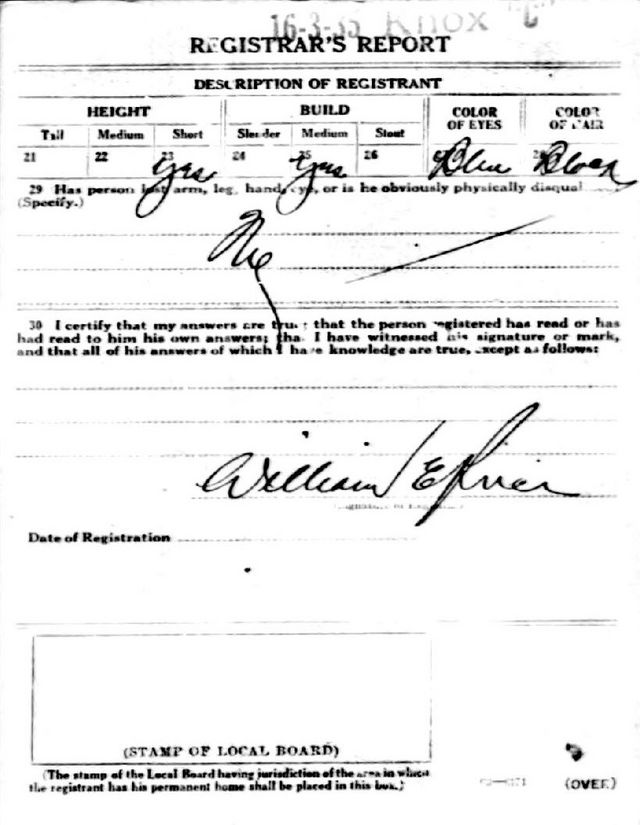 16-3-35 Knox C
REGISTRAR'S REPORT
DESCRIPTION OF REGISTRANT
HEIGHT BUILD COLOR OF EYES COLOR OF HAIR
Tall Medium Short Slender Medium Stout
21 22 23 24 25 26
Yes Yes Blue Black
29 Has person lost arm, leg, hand, eye, or is he obviously physically disqual
(Specify.)
No
30 I certify that my answers are true; that the person registered has read or has
had read to him his own answers; that I have witnessed his signature or mark,
and that all of his answers of which I have knowledge are true, except as follows:
William E
Date of Registration
(STAMP OF LOCAL BOARD)
(The stamp of the Local Board having jurisdiction of the area in which
the registrant has his permanent home shall be placed in this box.)
(OVER)